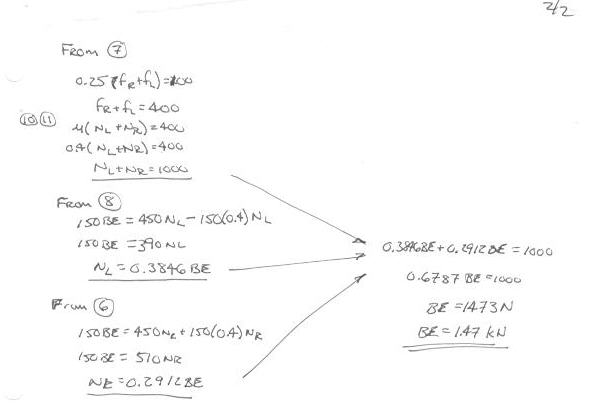 2/2
From ⑦
0.25 (fR+fL)=100
fR+fL=400
⑩⑪ μ(NL+NR)=400
0.4(NL+NR)=400
NL+NR=1000
From ⑧
150BE = 450NL - 150(0.4)NL
150BE = 390NL
NL = 0.3846 BE
From ⑥
150BE = 450NR + 150(0.4)NR
150BE = 510NR
NR = 0.2912BE
0.3846BE + 0.2912BE = 1000
0.6787 BE = 1000
BE = 1473N
BE = 1.47 kN